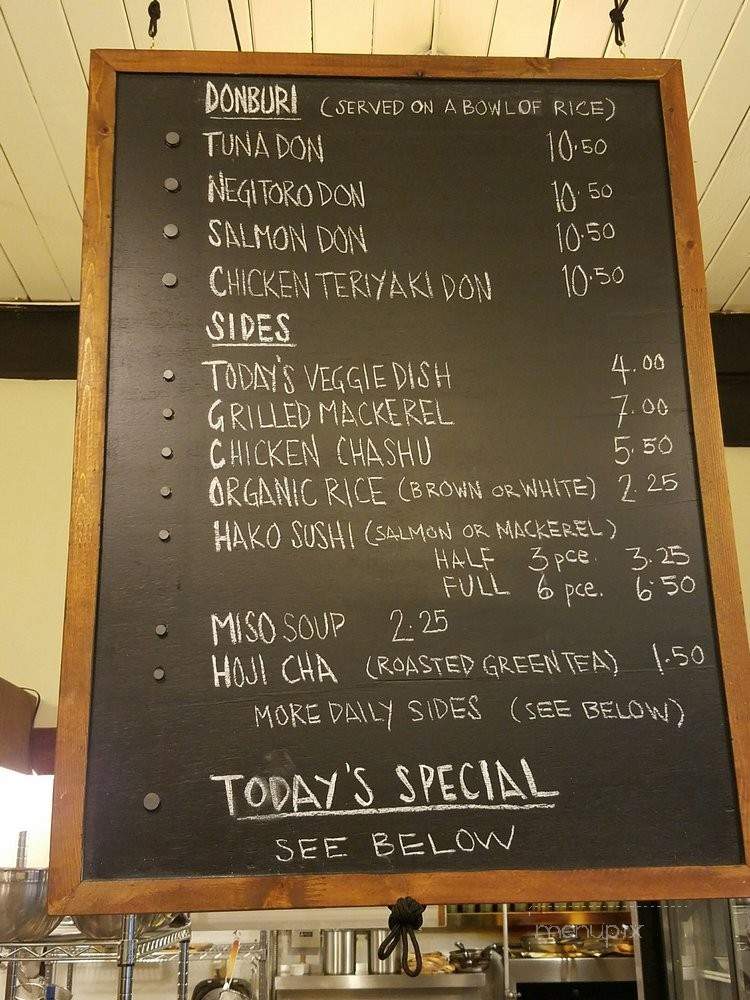 DONBURI (SERVED ON A BOWL OF RICE)
TUNA DON 10.50
NEGITORO DON 10.50
SALMON DON 10.50
CHICKEN TERIYAKI DON 10.50
SIDES
TODAY'S VEGGIE DISH 4.00
GRILLED MACKEREL 7.00
CHICKEN CHASHU 5.50
ORGANIC RICE (BROWN OR WHITE) 2.25
HAKO SUSHI (SALMON OR MACKEREL)
HALF 3 pce. 3.25
FULL 6 pce. 6.50
MISO SOUP 2.25
HOJI CHA (ROASTED GREEN TEA) 1.50
MORE DAILY SIDES (SEE BELOW)
TODAY'S SPECIAL
SEE BELOW
menupix